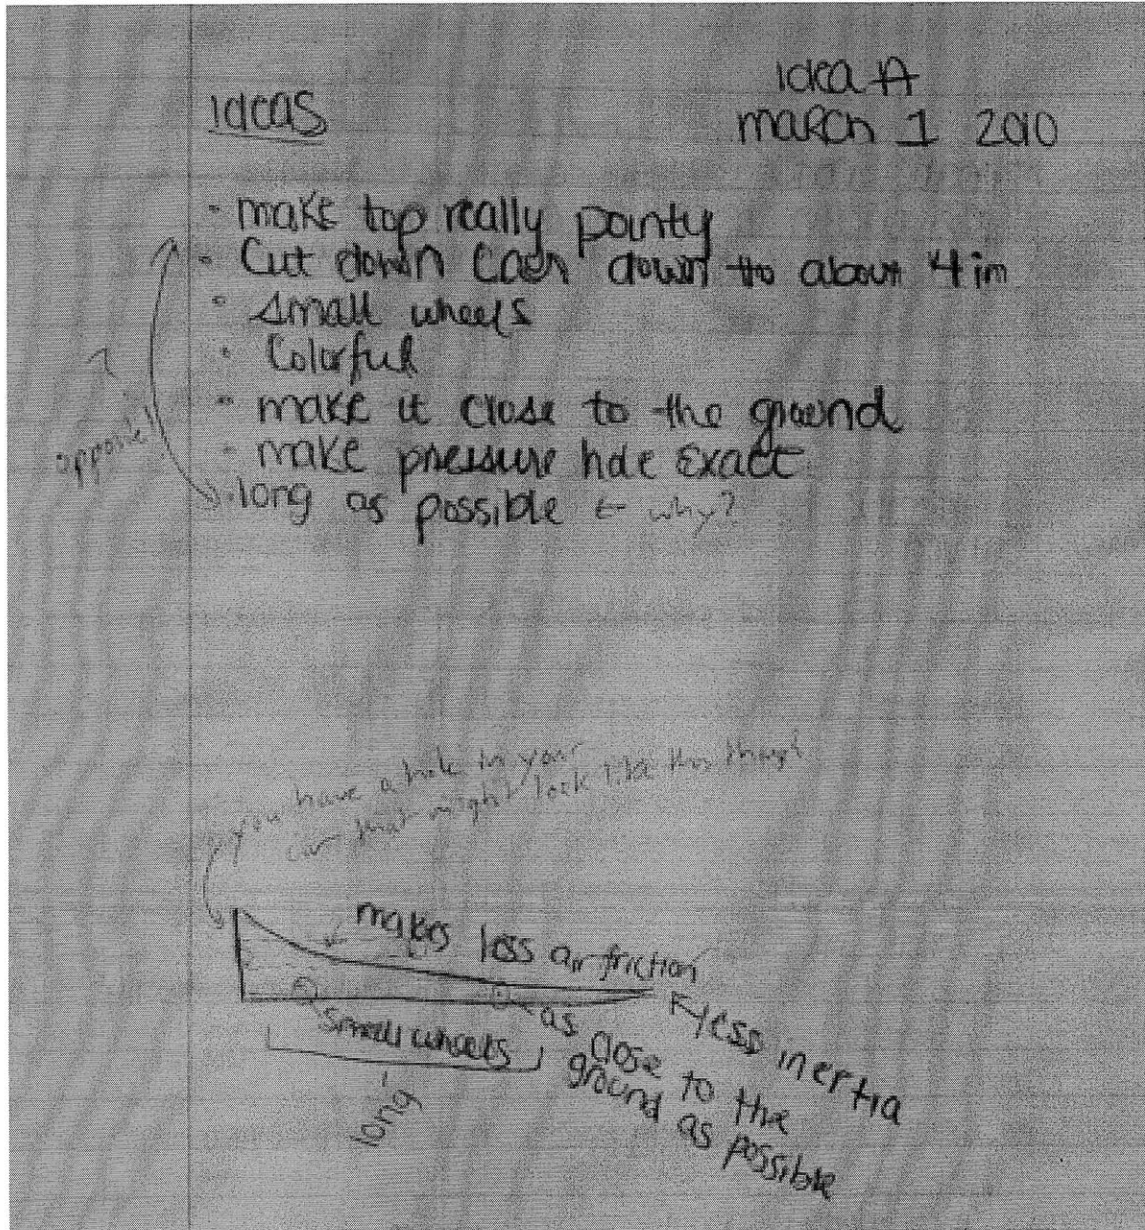 ideas
idea A
march 1 2010
- make top really pointy
- Cut down down to about 4 in
- small wheels
- Colorful
- make it close to the ground
- make pressure hole exact
- long as possible ← why?
opposite
?
you have a hole in your
car that might look like this though
makes less air friction
less inertia
small wheels
as close to the
ground as possible
long